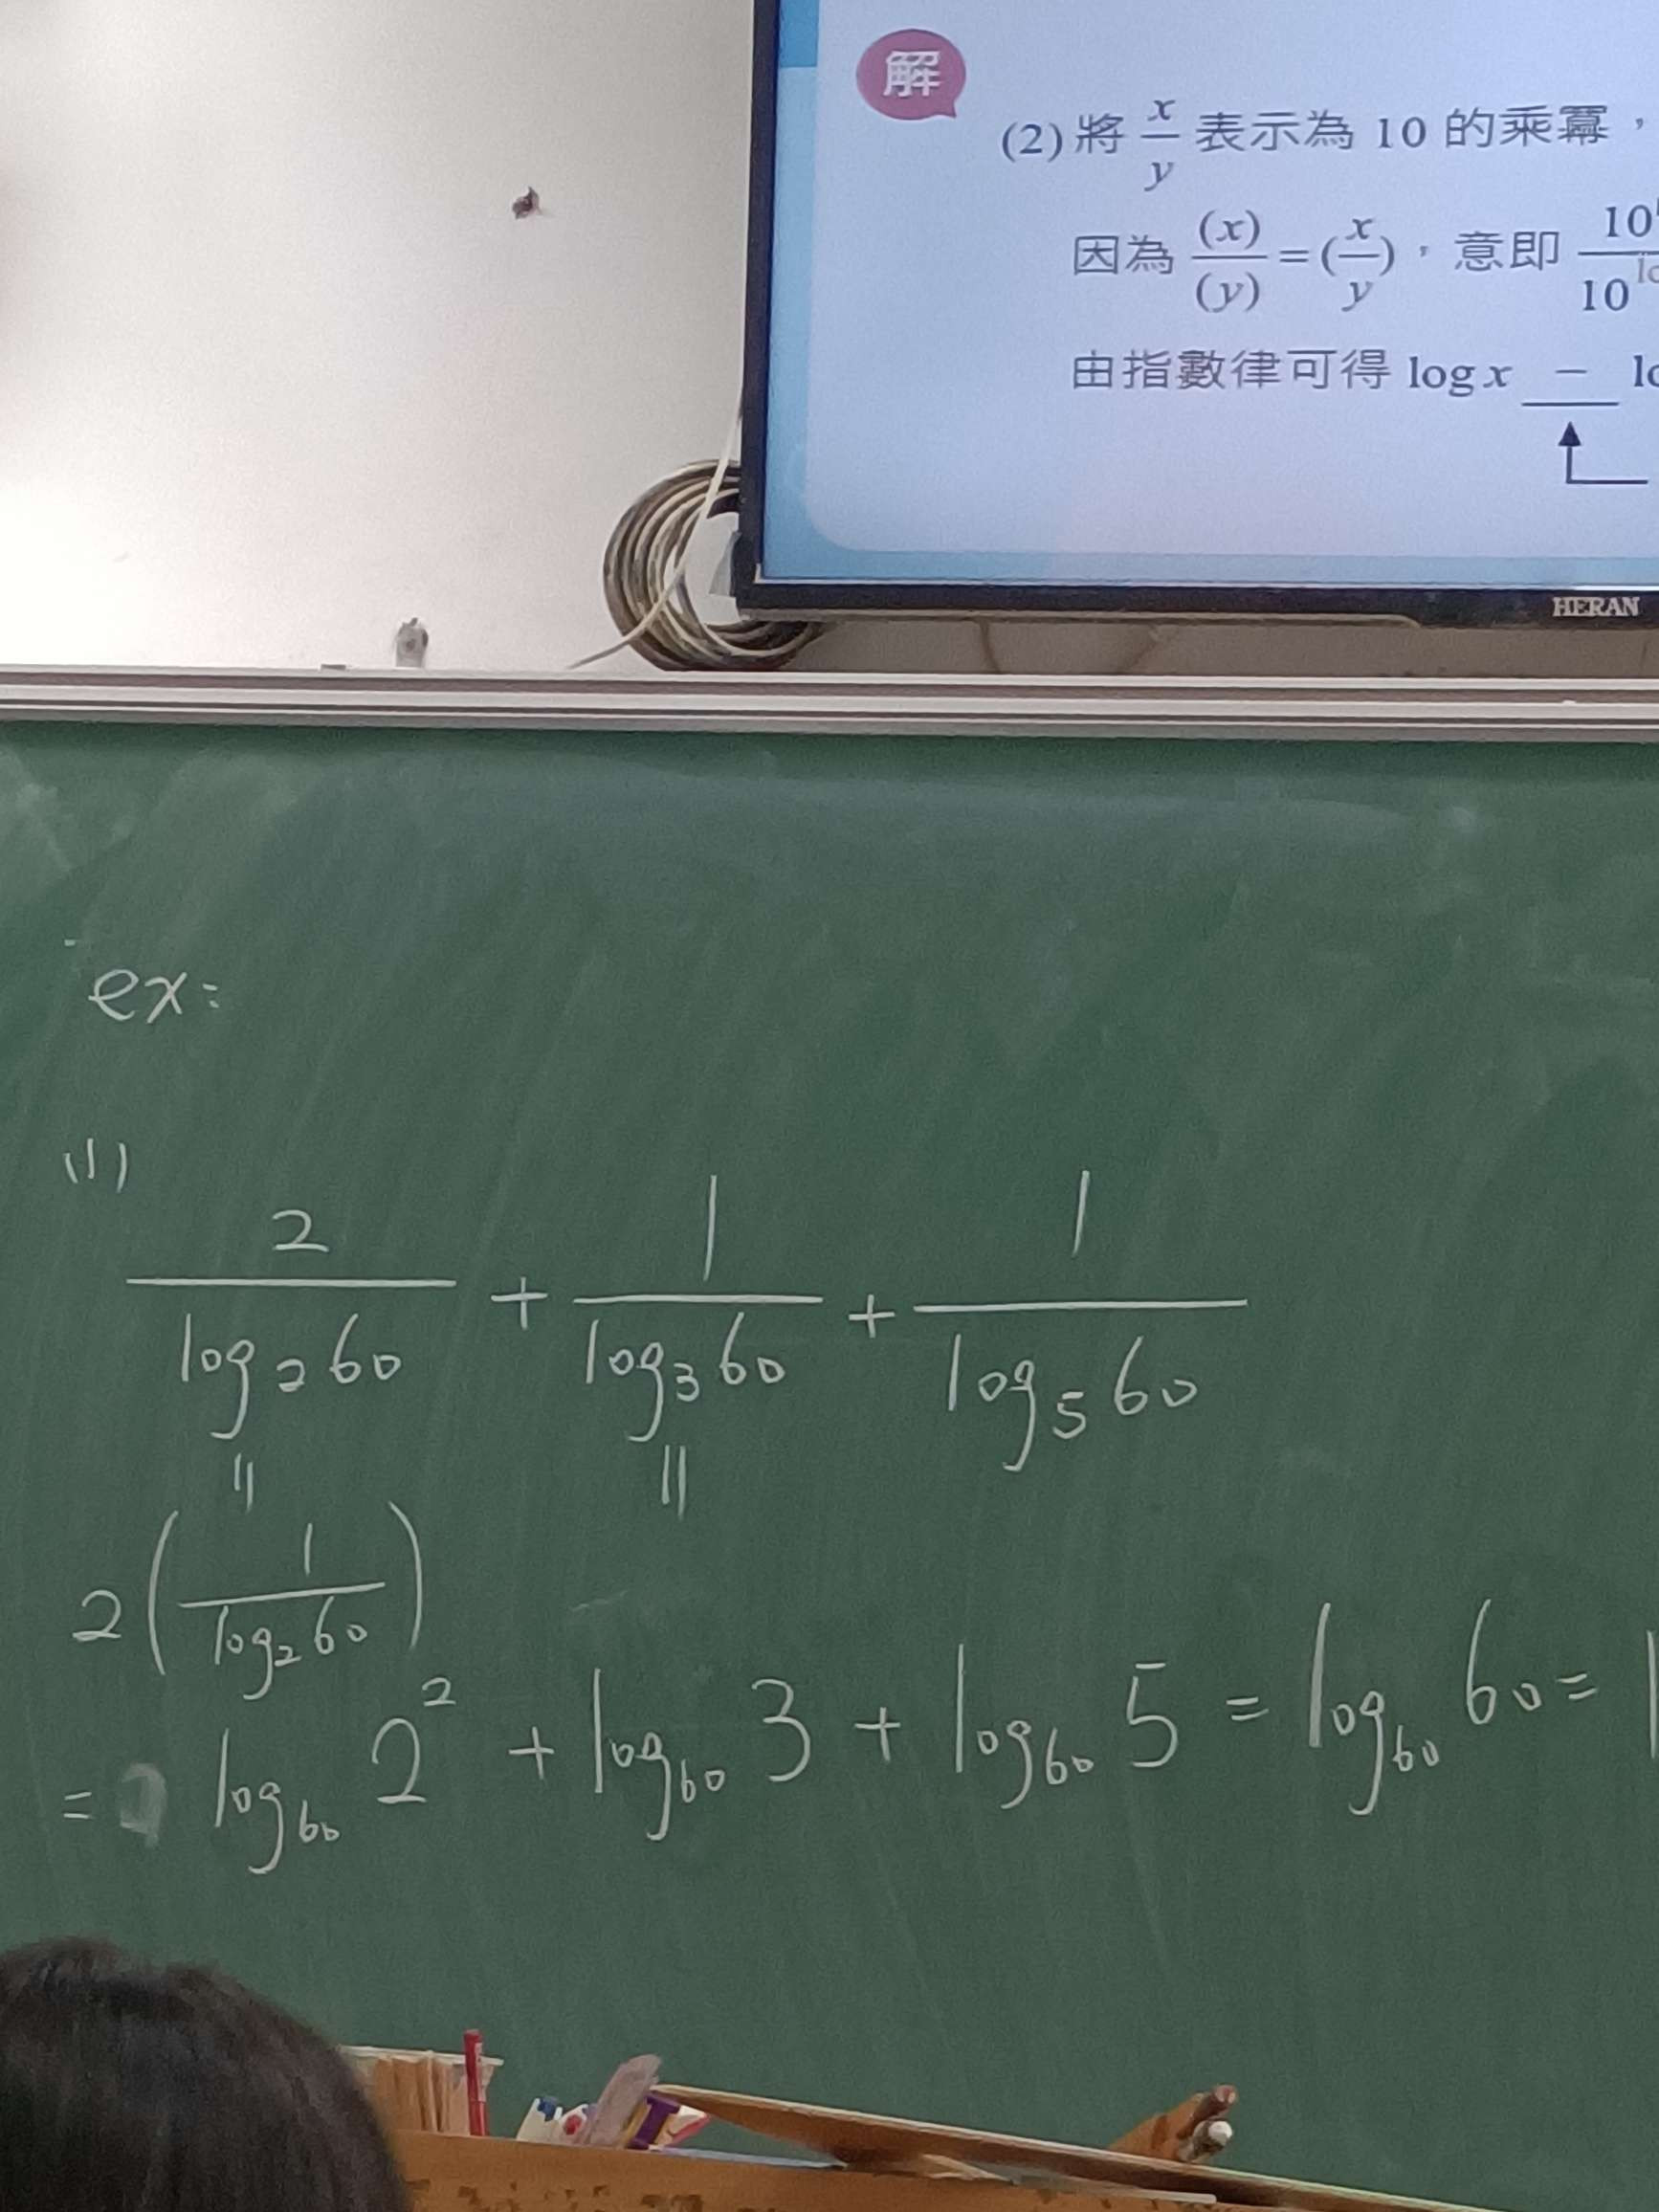 解
(2) 將 x/y 表示為 10 的乘冪，
因為 (x)/(y) = (x/y)，意即 10/10
由指數律可得 log x － lo
HERAN
ex:
(1)
2/log₂60 + 1/log₃60 + 1/log₅60
॥ ॥
2(1/log₂60)
= log₆₀ 2² + log₆₀ 3 + log₆₀ 5 = log₆₀ 60 = 1